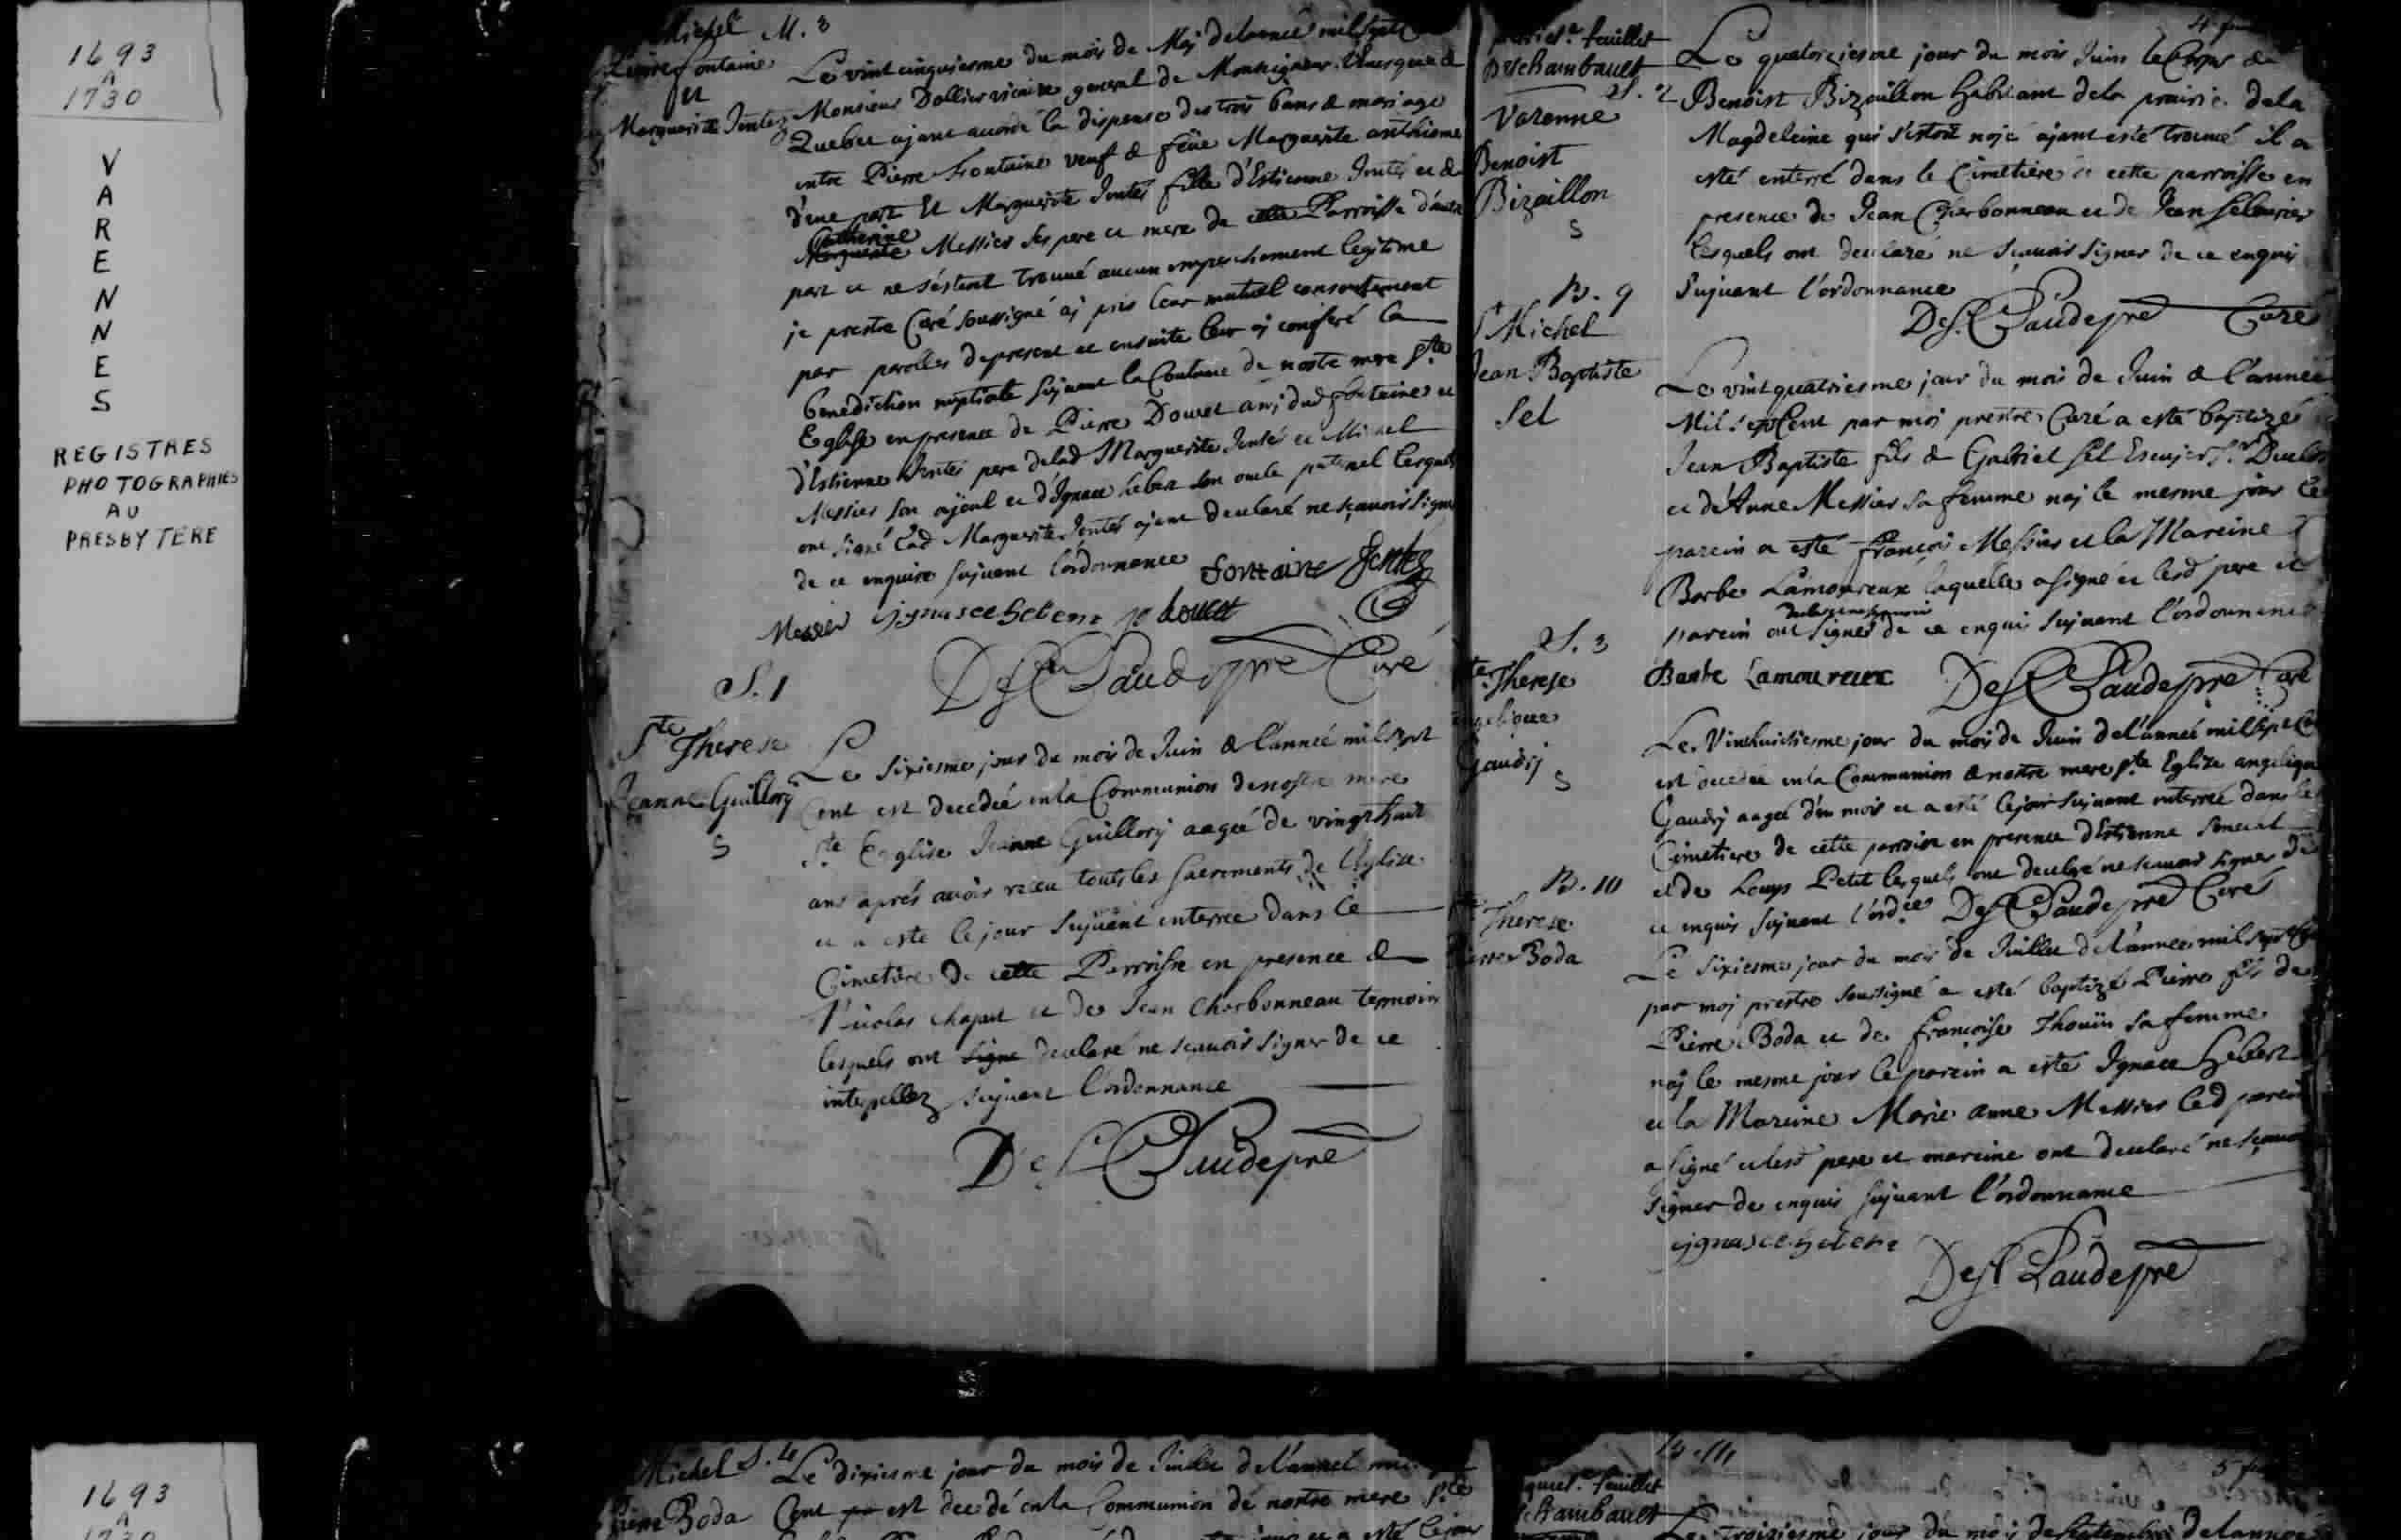 1693
A
1730
V
A
R
E
N
N
E
S
REGISTRES
PHOTOGRAPHIES
AU
PRESBYTERE
Michel M. 3
Pierre fontaine
et
Marguerite Jentes
Le vint cinquiesme du mois de Maj de lannee mil sept
Monsieur Dollier vicaire general de Monseigneur L'Euesque de
Quebec ajant accordé la dispense des trois bans de mariage
entre Pierre Fontaine veuf de feüe Marguerite anthiome
d'une part Et Marguerite Jentes fille d'Estienne Jentes et de
Catherine
Marguerite Messier ses pere et mere de cette Parroisse d'autre
part et ne s'estant trouué aucun empeschement legitime
je prestre Curé soussigné aj pris leur mutuel consentement
par parolles de present et ensuite leur aj conferé la
benediction nuptiale sujuant la Coutume de nostre mere Ste
Eglise en presence de Pierre Doucet amj dud fontaine et
d'Estienne Jentes pere de lad Marguerite Jentes et Michel
Messier son ajeul et d'Ignace hebert son oncle paternel lesquels
ont signé Lad Marguerite Jentes ajant declaré ne sçauoir signer
de ce enquise sujuant l'ordonnance fontaine Jentes
Messier ignasce hebert p doucet
Des C Laudepre Curé
S. 1
Ste Therese
Jeanne Guillorj
S
Le sixiesme jour du mois de Juin de l'anneé mil sept
Cent est decedeé en la Communion de nostre mere
Ste Eglise Jeanne Guillorj aageé de vingt huit
ans aprés auoir receu touts les sacrements de l'Eglise
et a esté le jour sujuant enterree dans le
Cimetiere de cette Parroisse en presence de
Nicolas chaput et de Jean Charbonneau temoins
lesquels ont signe declaré ne scauoir signer de ce
interpellez sujuant l'ordonnance
Des C Laudepre
feuillet
Deschambault
S. 2
Varenne
Benoist
Bizaillon
S
Le quatorziesme jour du mois Juin le Corps de
Benoist Bizaillon habitant de la prairie de la
Magdeleine qui s'estoit nojé ajant esté trouué il a
esté enterré dans le Cimetiere de cette parroisse en
presence de Jean Charbonneau et de Jean
lesquels ont declaré ne scauoir signer de ce enquis
sujuant l'ordonnance
Des C Laudepre Curé
B. 9
St Michel
Jean Baptiste
Sel
Le vint quatriesme jour du mois de Juin de l'anneé
Mil sept Cent par moi prestre Curé a esté baptizé
Jean Baptiste fils de Gabriel Sel Escujer Sr Duclos
et d'Anne Messier sa femme naj le mesme jour le
parein a esté françois Messier et la Mareine
Barbe Lamoureux laquelle a signé et lesd pere et
parein ont signer de ce enquis sujuant l'ordonnance
Barbe Lamoureux Des C Laudepre Curé
S. 3
Ste Therese
Angelique
Gaudrj
S
Le Vinthuictiesme jour du mois de Juin de l'anneé mil sept Cent
est decedee en la Communion de nostre mere Ste Eglize angelique
Gaudrj aageé d'un mois et a esté le jour sujuant enterreé dans le
Cimetiere de cette parroisse en presence d'Estienne Senecal
et de Louys Petit lesquels ont declaré ne scauoir signer de
ce enquis sujuant l'ordce Des C Laudepre Curé
B. 10
Ste Therese
Pierre Boda
Le sixiesme jour du mois de Juillet de l'annee mil sept Cent
par moj prestre soussigné a esté baptizé Pierre fils de
Pierre Boda et de françoise Thouin sa femme
naj le mesme jour le parein a esté Ignace Hebert
et la Mareine Marie anne Messier led parein
a signé et lesd pere et mareine ont declaré ne sçauoir
signer de enquis sujuant l'ordonnance
ignasce hebert
Des C Laudepre
1693
A
1730
Michel S. 4
Pierre Boda
Le dixiesme jour du mois de Juillet de l'anneé mil
Cent est decedé en la Communion de nostre mere Ste
feuillet
B. 11
Le Troiziesme jour du mois de Septembre de l'annee